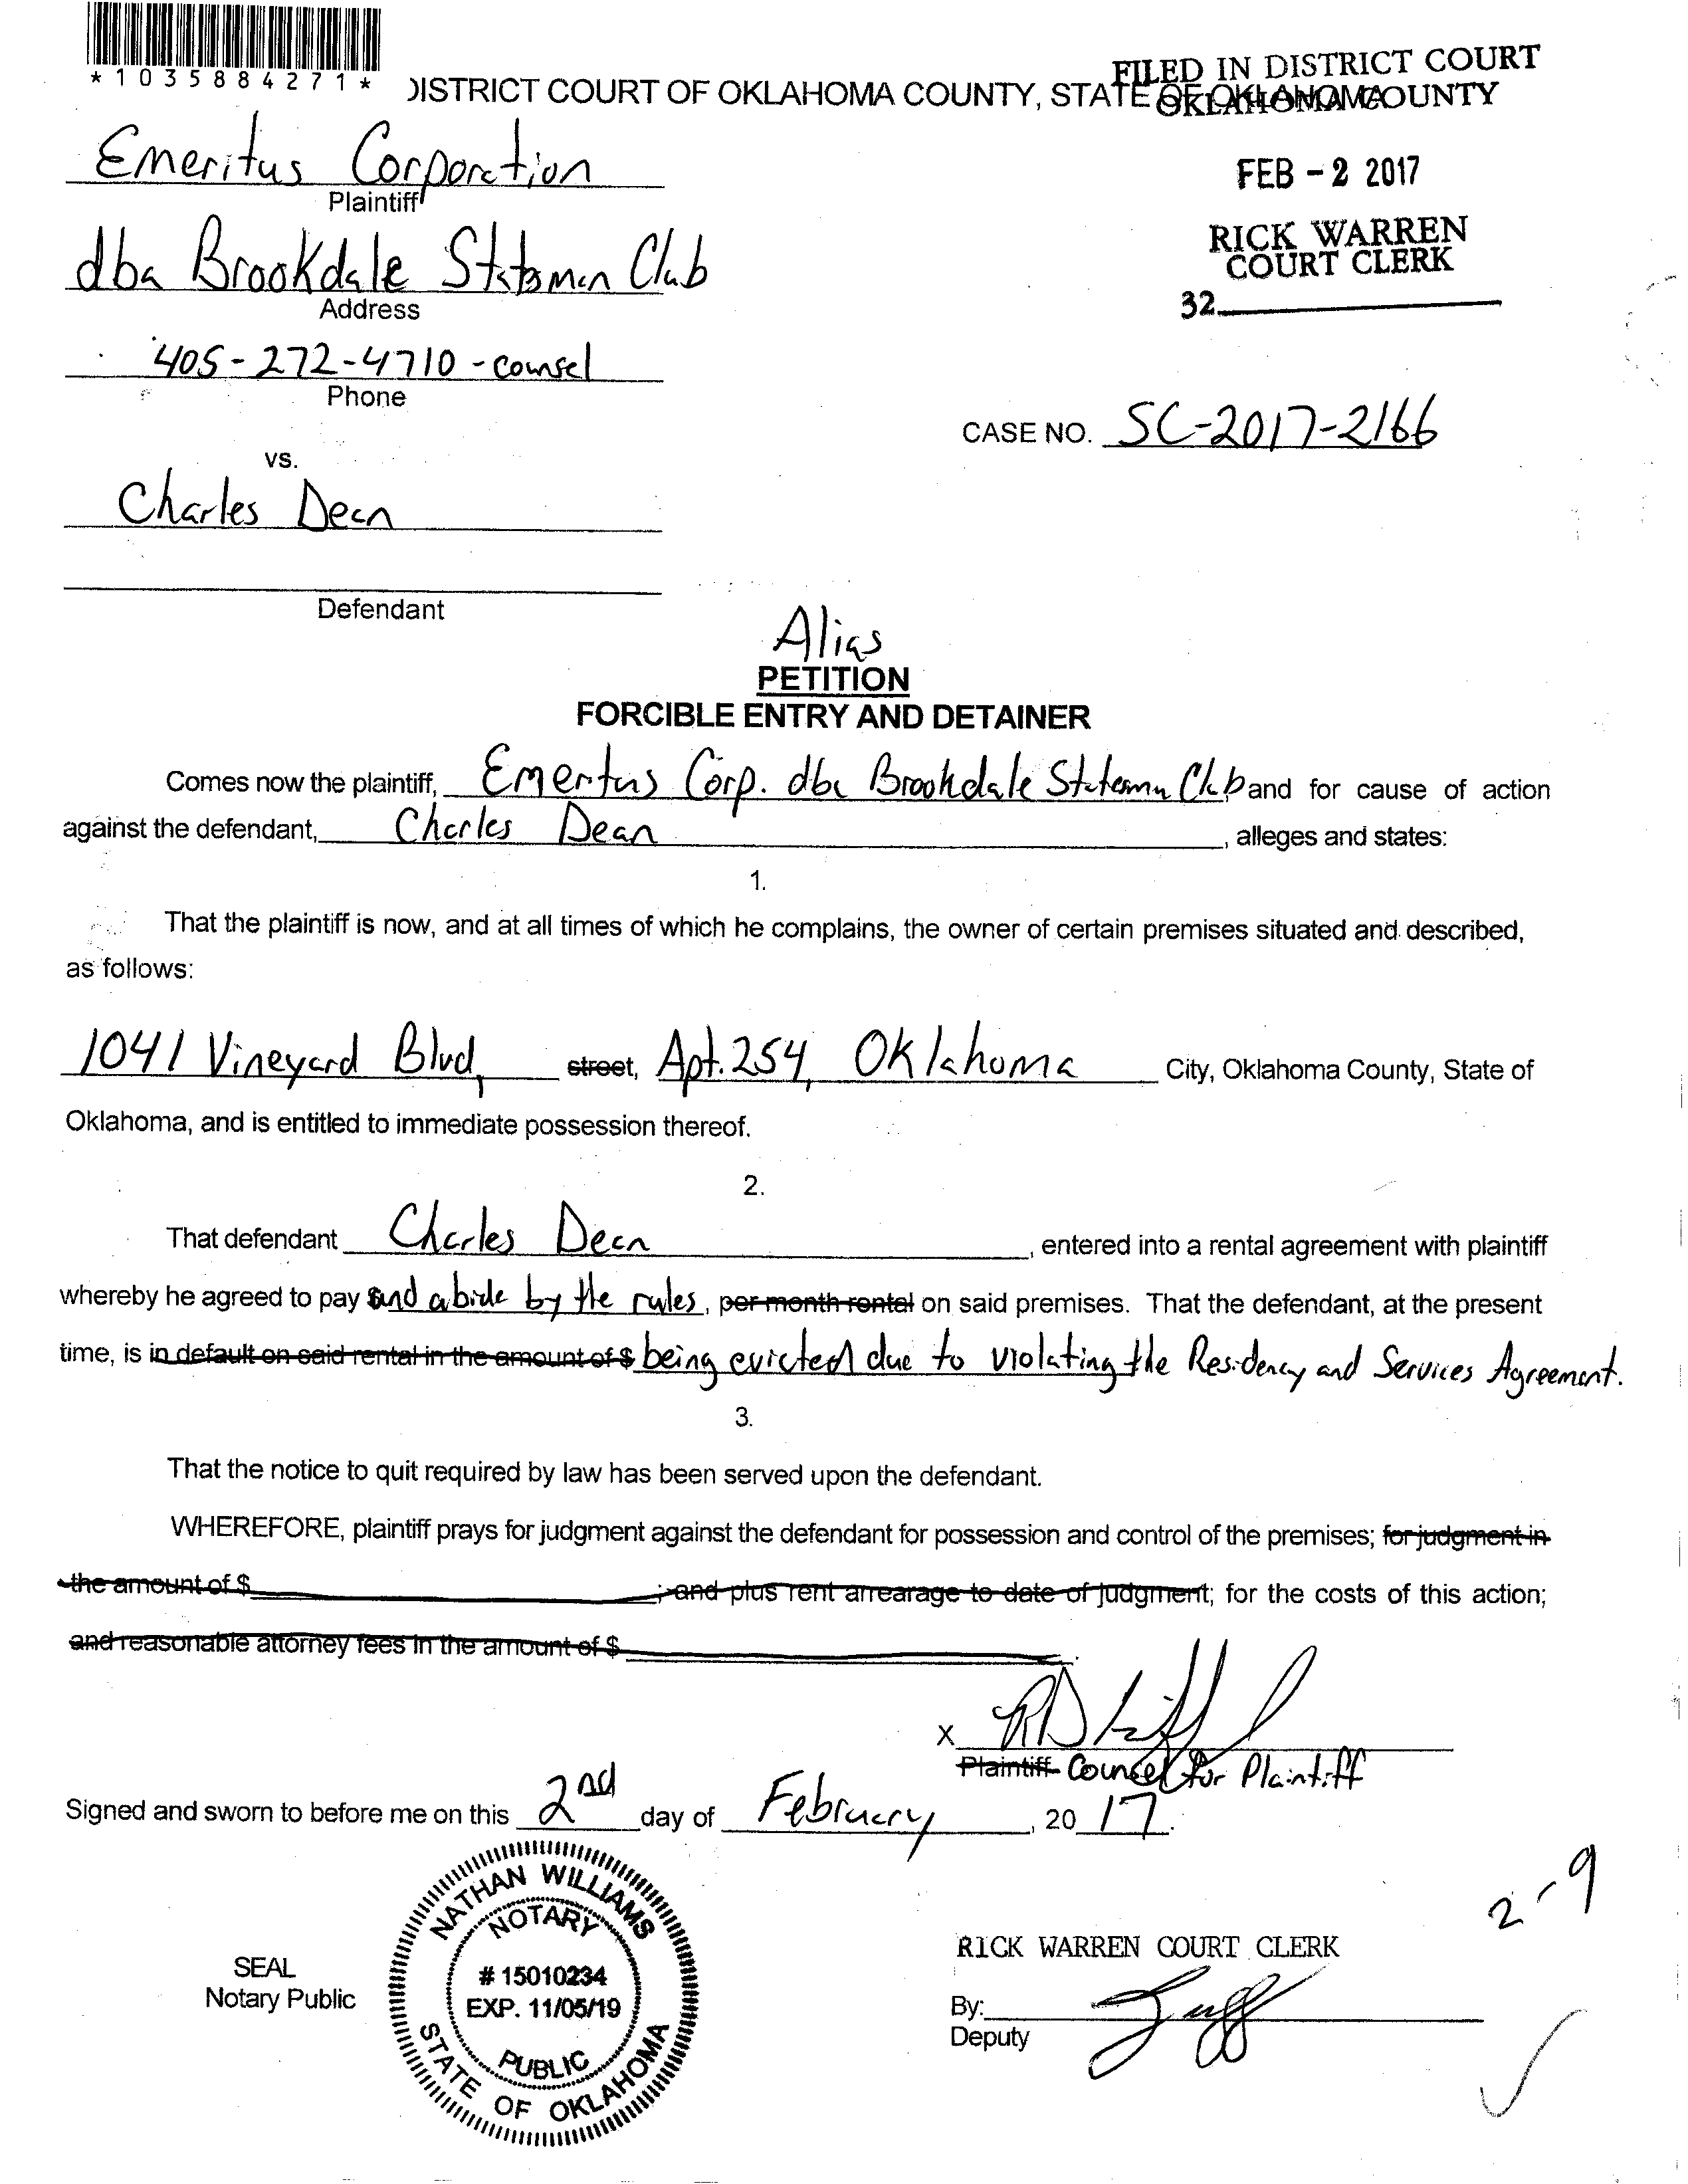 *1035884271*
DISTRICT COURT OF OKLAHOMA COUNTY, STATE OF OKLAHOMA
FILED IN DISTRICT COURT
OKLAHOMA COUNTY
FEB - 2 2017
RICK WARREN
COURT CLERK
32
Emeritus Corporation
Plaintiff
dba Brookdale Statsman Club
Address
405-272-4710 - counsel
Phone
CASE NO. SC-2017-2166
vs.
Charles Dean
Defendant
Alias
PETITION
FORCIBLE ENTRY AND DETAINER
Comes now the plaintiff, Emeritus Corp. dba Brookdale Statesman Club and for cause of action
against the defendant, Charles Dean, alleges and states:
1.
That the plaintiff is now, and at all times of which he complains, the owner of certain premises situated and described,
as follows:
1041 Vineyard Blvd, street, Apt. 254, Oklahoma City, Oklahoma County, State of
Oklahoma, and is entitled to immediate possession thereof.
2.
That defendant Charles Dean, entered into a rental agreement with plaintiff
whereby he agreed to pay and abide by the rules, per month rental on said premises. That the defendant, at the present
time, is in default on said rental in the amount of $ being evicted due to violating the Residency and Services Agreement.
3.
That the notice to quit required by law has been served upon the defendant.
WHEREFORE, plaintiff prays for judgment against the defendant for possession and control of the premises; for judgment in
the amount of $ ; and plus rent arrearage to date of judgment; for the costs of this action;
and reasonable attorney fees in the amount of $ .
X
Plaintiff Counsel for Plaintiff
Signed and sworn to before me on this 2nd day of February, 20 17.
NATHAN WILLIAMS
NOTARY
# 15010234
EXP. 11/05/19
PUBLIC
STATE OF OKLAHOMA
SEAL
Notary Public
2-9
RICK WARREN COURT CLERK
By:
Deputy